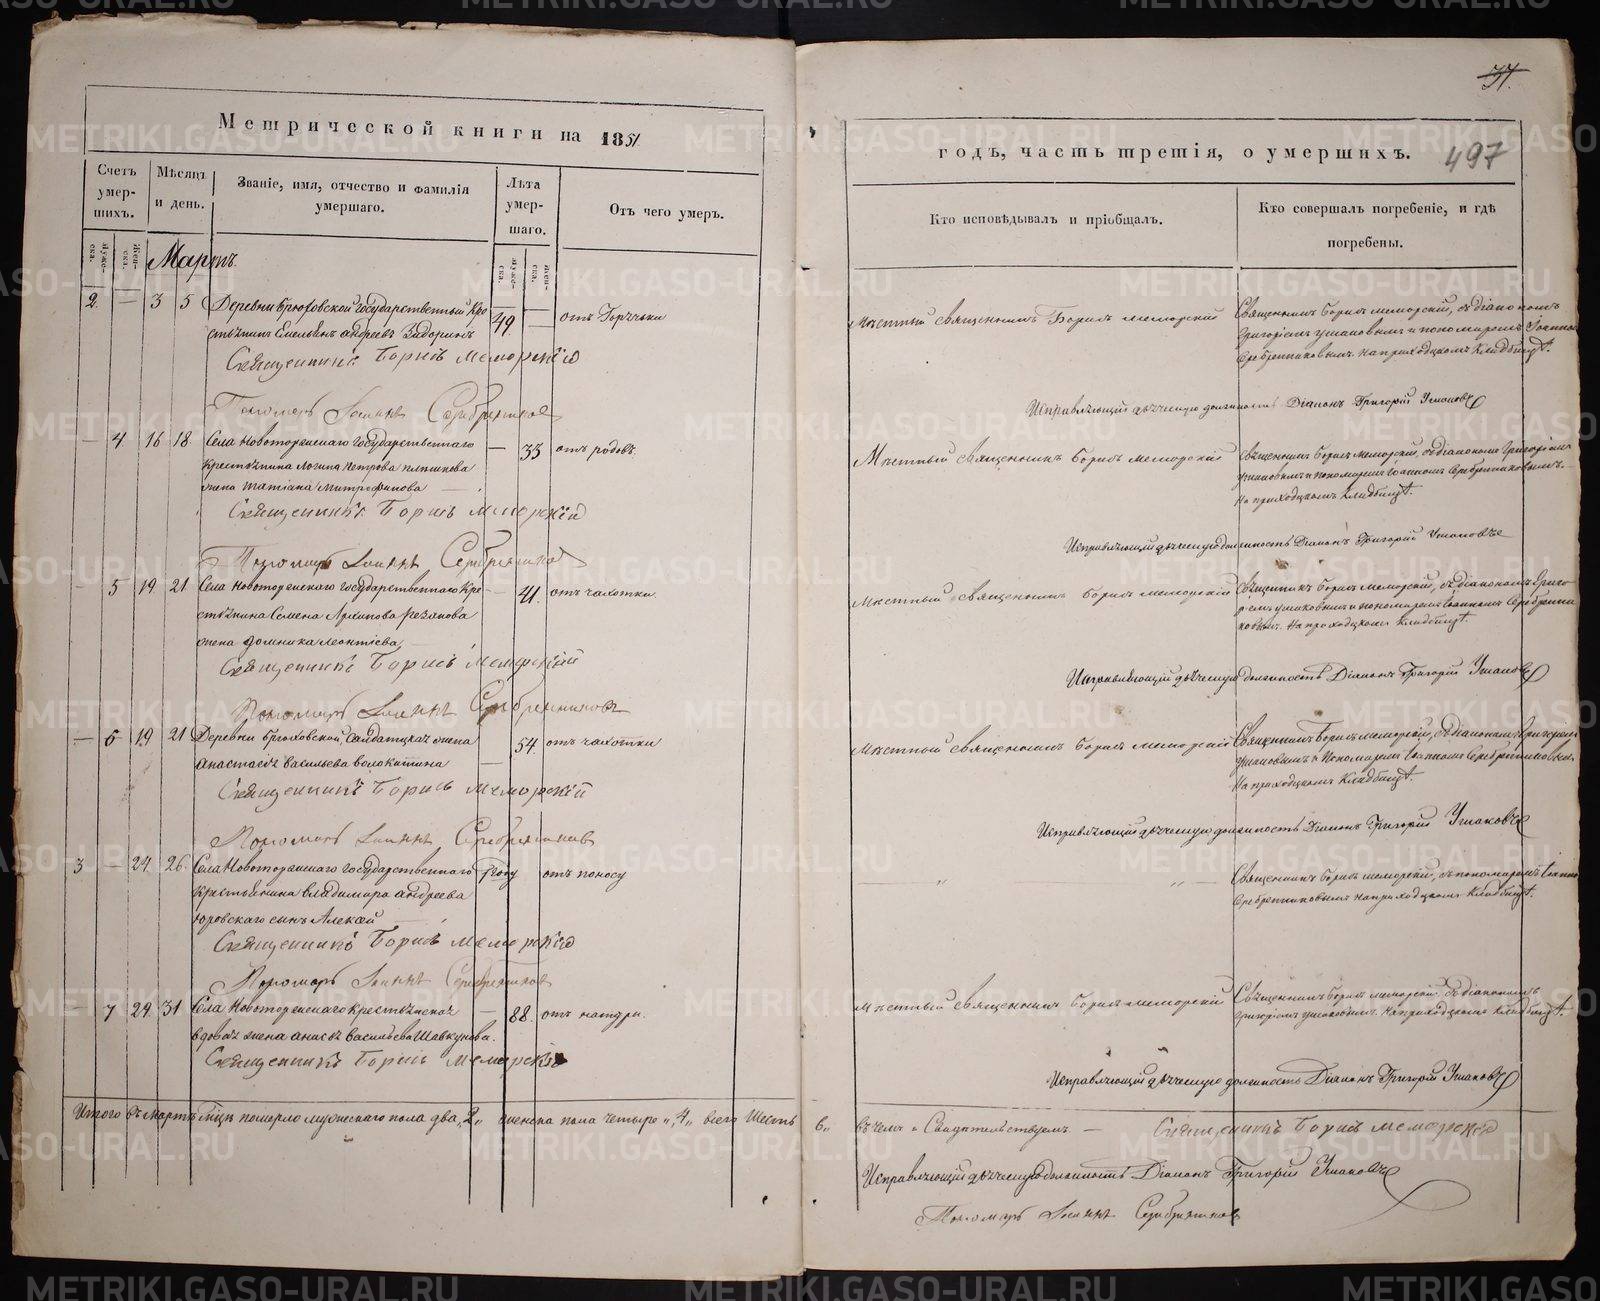 Метрической книги на 1851
Счетъ умер-шихъ.
Мѣсяцъ и день.
Званіе, имя, отчество и фамилія умершаго.
Лѣта умер-шаго.
Отъ чего умеръ.
Муже-ска.
Жен-ска.
Муже-ска.
Жен-ска.
Мартъ.
2 — 3 5 Деревни Брюховской Государственный Кре
стьянинъ Емельянъ Андреевъ 49 — отъ Горячки
Священникъ Борисъ Меморскій
Пономарь Іоаннъ Серебрениковъ
— 4 16 18 Села Новоторжскаго Государственнаго — 33 отъ родовъ.
Крестьянина Логина Петрова
жена Татіана Митрофанова
Священникъ Борисъ Меморскій
Пономарь Іоаннъ Серебрениковъ
— 5 19 21 Села Новоторжскаго Государственнаго Кре — 41. отъ чахотки
стьянина Семена Архипова Рязанова
жена Домника Леонтіева
Священникъ Борисъ Меморскій
Пономарь Іоаннъ Серебренниковъ
— 6 19 21 Деревни Брюховской, Салдатская жена — 54. отъ чахотки
Анастасія Васильева Волокитина
Священникъ Борисъ Меморскій
Пономарь Іоаннъ Серебрениковъ
3 — 24 26 Села Новоторжскаго Государственнаго году отъ поносу
крестьянина Владимира Андреева
Юровскаго сынъ Алексѣй
Священникъ Борисъ Меморскій
Пономарь Іоаннъ Серебрениковъ
— 7 29 31 Села Новоторжскаго крестьянская — 88. отъ натуры.
вдова жена Васильева
Священникъ Борисъ Меморскій
Итого въ Мартѣ мцѣ померло мужескаго пола два „2„ женска пола четыре „4„ всего Шесть 6„
37.
497
годъ, часть третія, о умершихъ.
Кто исповѣдывалъ и пріобщалъ.
Кто совершалъ погребеніе, и гдѣ погребены.
Мѣстный священникъ Борисъ Меморскій
Священникъ Борисъ Меморскій, съ діакономъ
Григоріемъ Ушаковымъ и пономаремъ Іоанномъ
Серебренниковымъ. На приходскомъ Кладбищѣ.
Исправляющій дьяческую должность Діаконъ Григорій Ушаковъ
Мѣстный священникъ Борисъ Меморскій
Священникъ Борисъ Меморскій, съ діакономъ Григоріемъ
Ушаковымъ и пономаремъ Іоанномъ Серебренниковымъ.
На приходскомъ Кладбищѣ.
Исправляющій дьяческую должность Діаконъ Григорій Ушаковъ
Мѣстный священникъ Борисъ Меморскій
Священникъ Борисъ Меморскій, съ діакономъ Григо
ріемъ Ушаковымъ и пономаремъ Іоанномъ Серебренни
ковымъ. На приходскомъ Кладбищѣ.
Исправляющій дьяческую должность Діаконъ Григорій Ушаковъ
Мѣстный священникъ Борисъ Меморскій
Священникъ Борисъ Меморскій, съ діакономъ Григоріемъ
Ушаковымъ и Пономаремъ Іоанномъ Серебренниковымъ
На приходскомъ Кладбищѣ.
Исправляющій дьяческую должность Діаконъ Григорій Ушаковъ
— „ „ —
Священникъ Борисъ Меморскій, съ пономаремъ Іоанно
Серебренниковымъ на приходскомъ Кладбищѣ.
Мѣстный священникъ Борисъ Меморскій
Священникъ Борисъ Меморскій съ діакономъ
Григоріемъ Ушаковымъ. На приходскомъ Кладбищѣ.
Исправляющій дьяческую должность Діаконъ Григорій Ушаковъ
въ чемъ и Свидѣтельствуемъ — Священникъ Борисъ Меморскій
Исправляющій дьяческую должность Діаконъ Григорій Ушаковъ
Пономарь Іоаннъ Серебрениковъ
METRIKI.GASO-URAL.RU